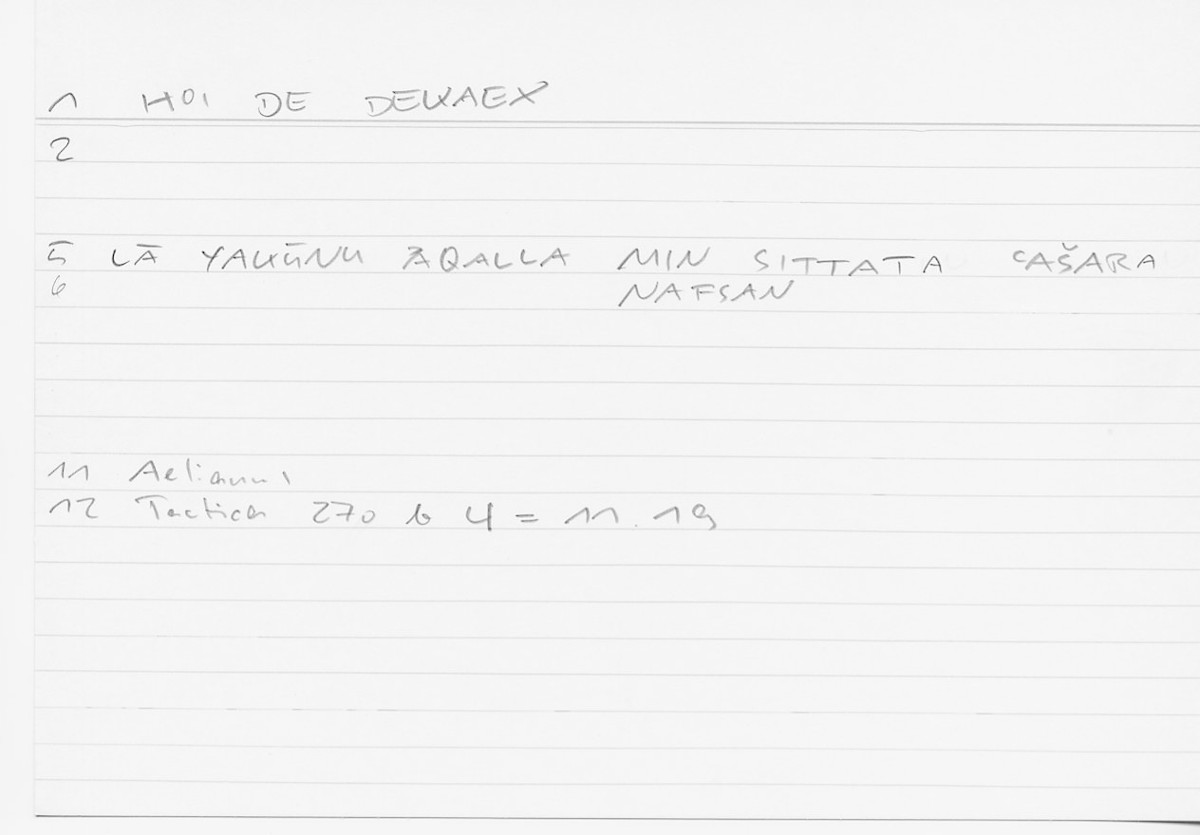 1 HOI DE DEKAEX
2
5 LĀ YAKŪNU AQALLA MIN SITTATA ʿAŠARA
6 NAFSAN
11 Aelianus
12 Tactica 270 b 4 = 11.19